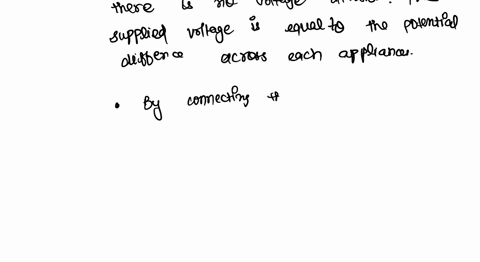 there is no voltage
supplied voltage is equal to the potential
difference across each appliances.
• By connecting